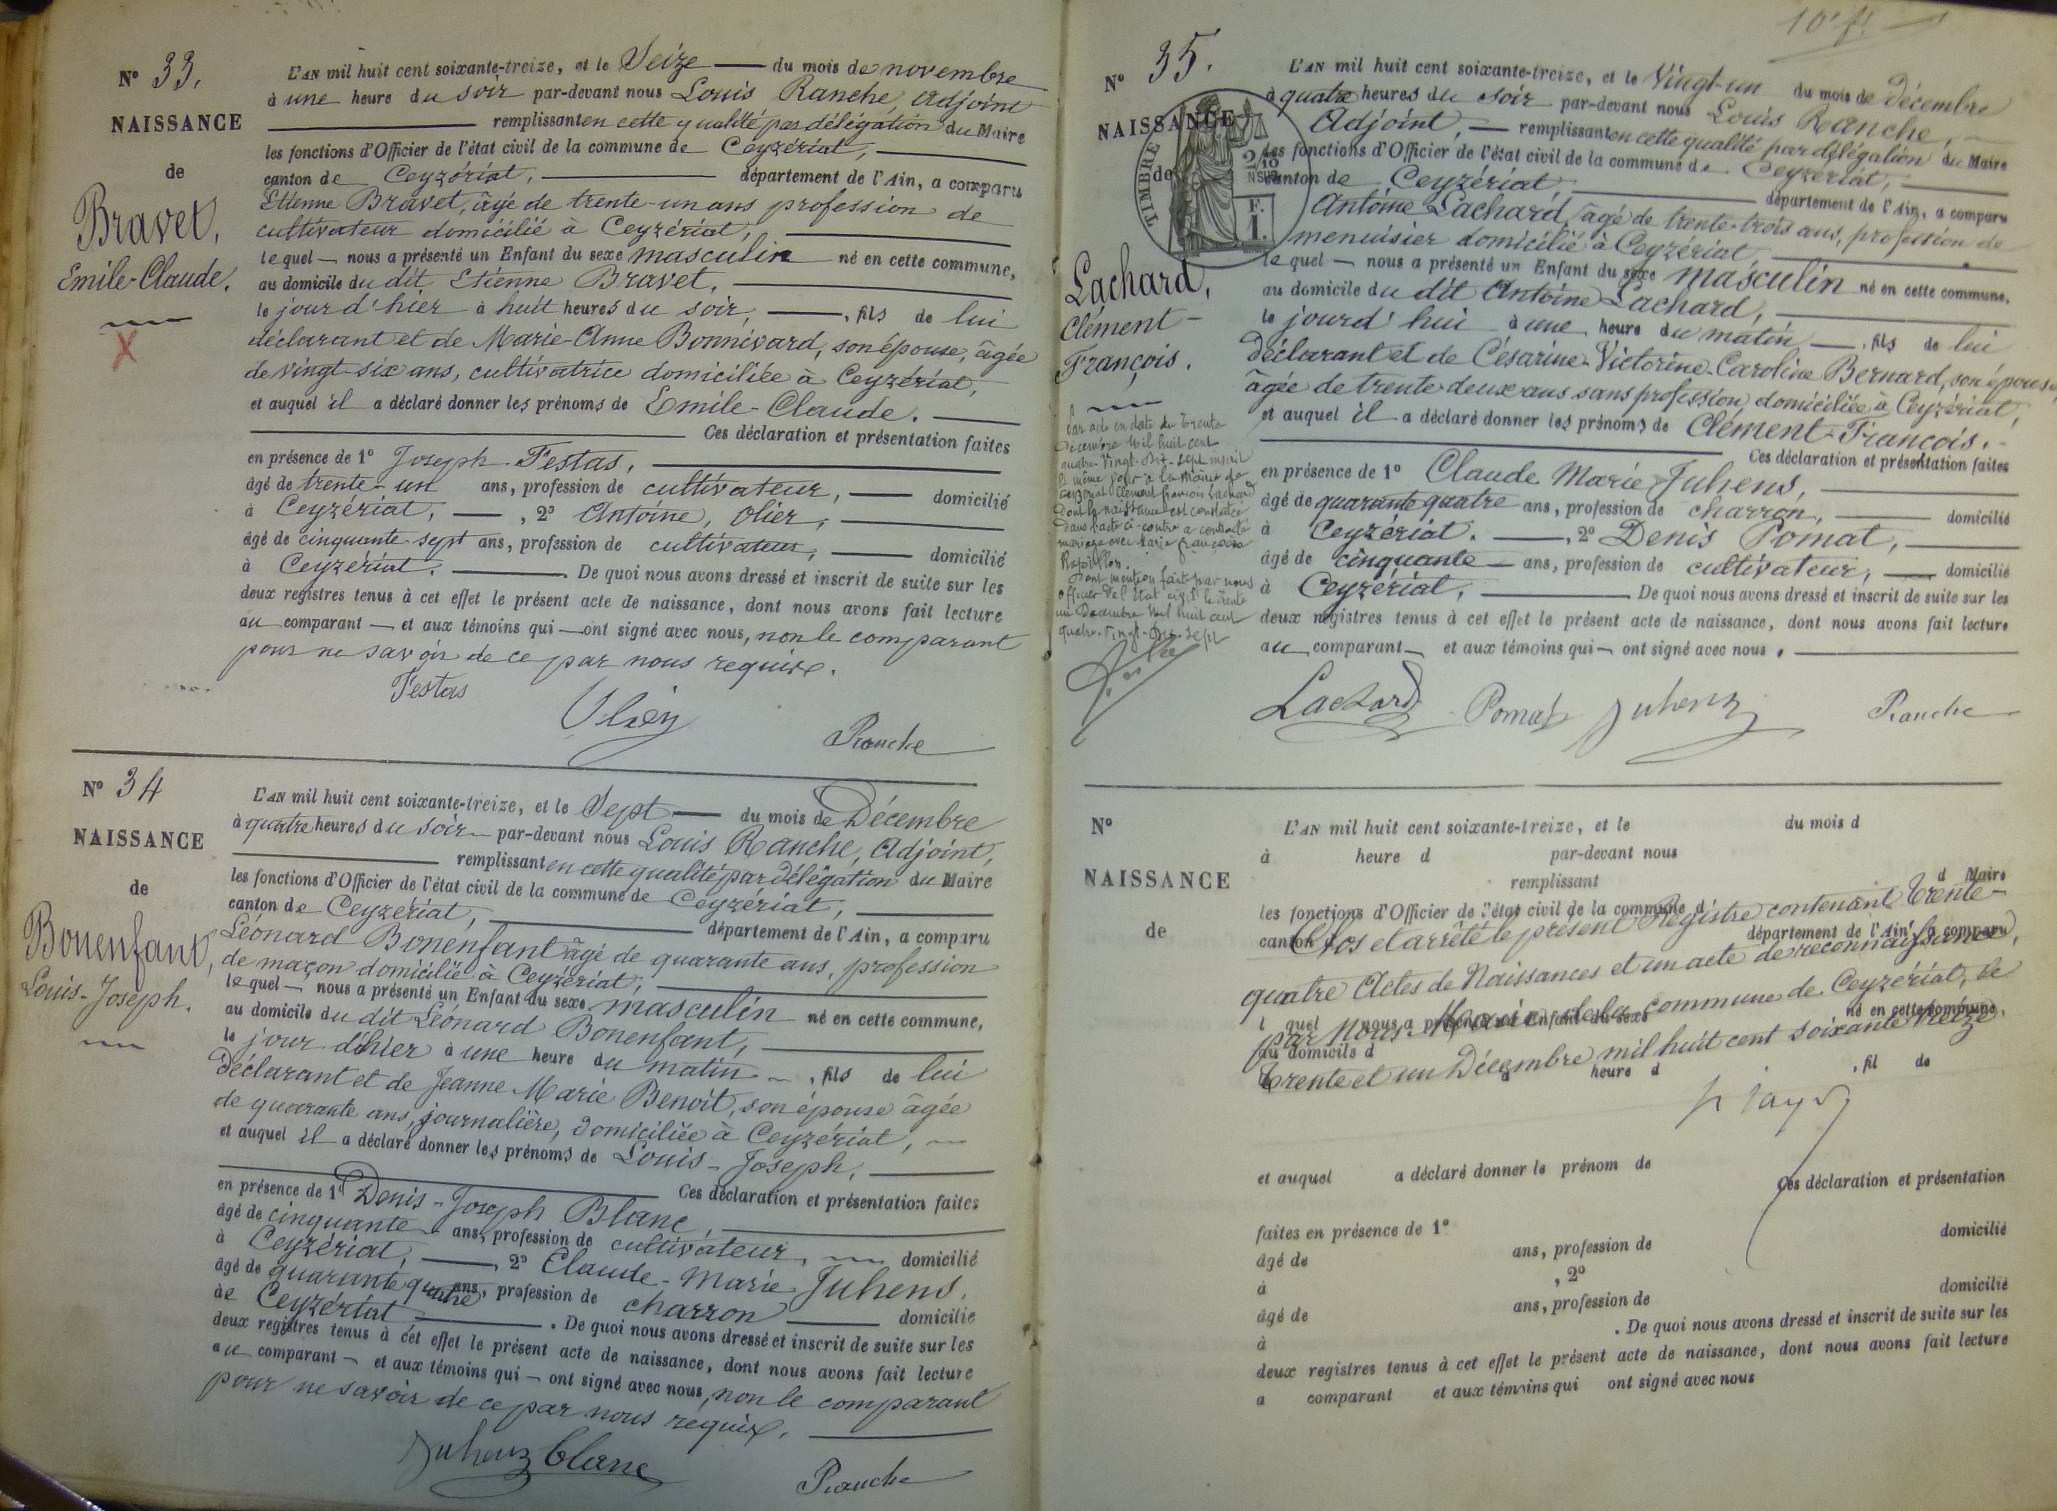 N° 33.
NAISSANCE
de
Bravet,
Emile-Claude.
L'AN mil huit cent soixante-treize, et le Seize du mois de novembre
à une heure du soir par-devant nous Louis Ranche, Adjoint
remplissant en cette qualité par délégation du Maire
les fonctions d'Officier de l'état civil de la commune de Ceyzériat,
canton de Ceyzériat, département de l'Ain, a comparu
Etienne Bravet, âgé de trente-un ans profession de
cultivateur domicilié à Ceyzériat,
le quel nous a présenté un Enfant du sexe masculin né en cette commune,
au domicile du dit Etienne Bravet,
le jour d'hier à huit heures du soir, fils de lui
déclarant et de Marie-Anne Bonnivard, son épouse, âgée
de vingt-six ans, cultivatrice domiciliée à Ceyzériat,
et auquel il a déclaré donner les prénoms de Emile-Claude.
Ces déclaration et présentation faites
en présence de 1° Joseph Festas,
âgé de trente-un ans, profession de cultivateur, domicilié
à Ceyzériat, , 2° Antoine, Olier,
âgé de cinquante-sept ans, profession de cultivateur, domicilié
à Ceyzériat. De quoi nous avons dressé et inscrit de suite sur les
deux registres tenus à cet effet le présent acte de naissance, dont nous avons fait lecture
au comparant et aux témoins qui ont signé avec nous, non le comparant
pour ne savoir de ce par nous requis.
Festas
Olier
Ranche
N° 34
NAISSANCE
de
Bonenfant,
Louis-Joseph.
L'AN mil huit cent soixante-treize, et le Sept du mois de Décembre
à quatre heures du soir par-devant nous Louis Ranche, Adjoint,
remplissant en cette qualité par délégation du Maire
les fonctions d'Officier de l'état civil de la commune de Ceyzériat,
canton de Ceyzériat, département de l'Ain, a comparu
Léonard Bonenfant âgé de quarante ans, profession
de maçon domicilié à Ceyzériat,
le quel nous a présenté un Enfant du sexe masculin né en cette commune,
au domicile du dit Léonard Bonenfant,
le jour d'hier à une heure du matin , fils de lui
déclarant et de Jeanne Marie Benoit, son épouse âgée
de quarante ans, journalière, domiciliée à Ceyzériat,
et auquel il a déclaré donner les prénoms de Louis-Joseph,
Ces déclaration et présentation faites
en présence de 1° Denis-Joseph Blanc,
âgé de cinquante ans, profession de cultivateur, domicilié
à Ceyzériat, , 2° Claude-Marie Juhens.
âgé de quarante quatre ans, profession de charron domicilié
à de Ceyzériat . De quoi nous avons dressé et inscrit de suite sur les
deux registres tenus à cet effet le présent acte de naissance, dont nous avons fait lecture
au comparant et aux témoins qui ont signé avec nous, non le comparant
pour ne savoir de ce par nous requis.
Juhenz Blanc
Ranche
10 f.
N° 35.
NAISSANCE
de
TIMBRE
Lachard,
Clément-
François.
Par acte en date du trente
Décembre mil huit cent
quatre-vingt-dix-sept inscrit
le même jour à la Mairie de
Ceyzériat Clément François Lachard
dont la naissance est constatée
dans l'acte ci-contre a contracté
mariage avec Marie Françoise
Dont mention faite par nous
officier de l'état civil le trente
un Décembre mil huit cent
quatre-vingt-dix-sept
L'AN mil huit cent soixante-treize, et le Vingt-un du mois de Décembre
à quatre heures du soir par-devant nous Louis Ranche,
Adjoint, remplissant en cette qualité par délégation du Maire
les fonctions d'Officier de l'état civil de la commune de Ceyzériat,
canton de Ceyzériat, département de l'Ain, a comparu
Antoine Lachard, âgé de trente-trois ans, profession de
menuisier domicilié à Ceyzériat
le quel nous a présenté un Enfant du sexe masculin né en cette commune,
au domicile du dit Antoine Lachard,
le jourd'hui à une heure du matin , fils de lui
déclarant et de Césarine-Victorine-Caroline Bernard, son épouse,
âgée de trente deux ans sans profession, domiciliée à Ceyzériat,
et auquel il a déclaré donner les prénoms de Clément-François.
Ces déclaration et présentation faites
en présence de 1° Claude Marie Juhens,
âgé de quarante quatre ans, profession de charron, domicilié
à Ceyzériat. , 2° Denis Pomat,
âgé de cinquante ans, profession de cultivateur, domicilié
à Ceyzériat, De quoi nous avons dressé et inscrit de suite sur les
deux registres tenus à cet effet le présent acte de naissance, dont nous avons fait lecture
au comparant et aux témoins qui ont signé avec nous.
Lachard Pomat Juhenz Ranche
N°
NAISSANCE
de
L'AN mil huit cent soixante-treize, et le du mois d
à heure d par-devant nous
remplissant d Maire
les fonctions d'Officier de l'état civil de la commune d
canton d département de l'Ain, a comparu
Clos et arrêté le présent Registre contenant trente-
quatre Actes de Naissances et un acte de reconnaissance,
l quel nous a présenté un Enfant du sexe né en cette commune,
par Nous Maire de la commune de Ceyzériat, le
au domicile d
trente et un Décembre mil huit cent soixante treize
à heure d , fil de
et auquel a déclaré donner le prénom de
Ces déclaration et présentation
faites en présence de 1°
âgé de ans, profession de domicilié
à , 2°
âgé de ans, profession de domicilié
à . De quoi nous avons dressé et inscrit de suite sur les
deux registres tenus à cet effet le présent acte de naissance, dont nous avons fait lecture
a comparant et aux témoins qui ont signé avec nous